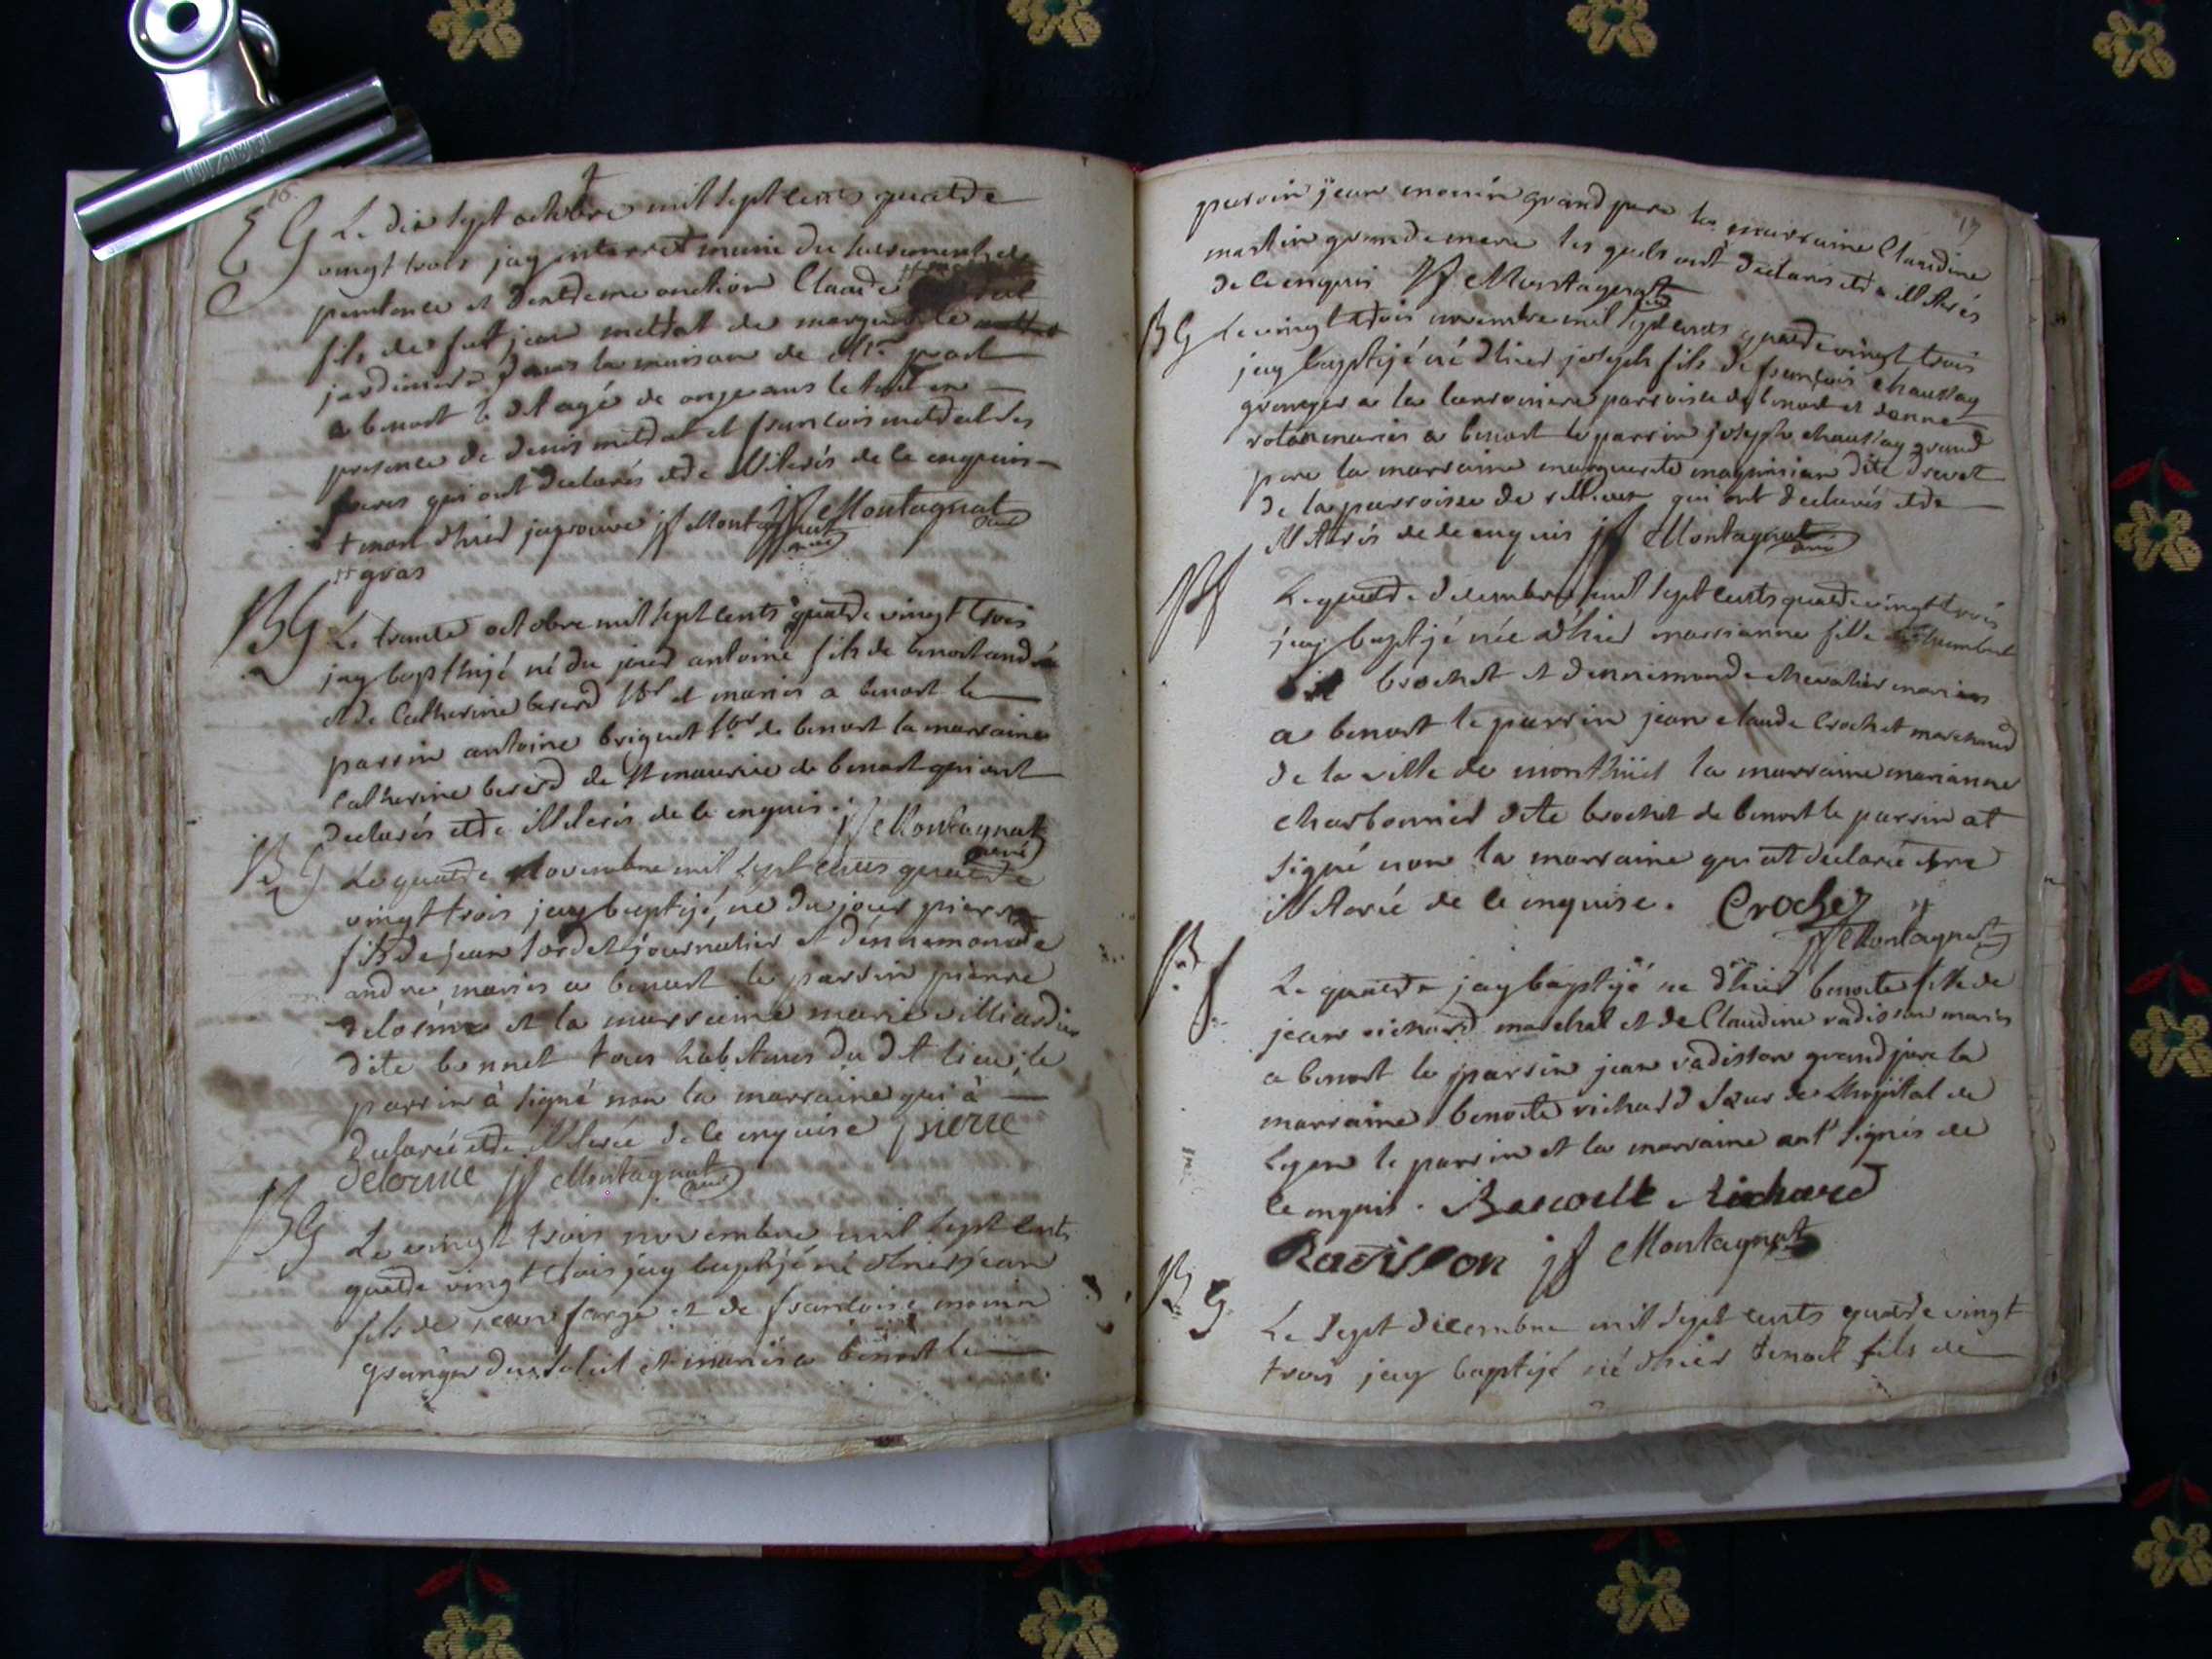 16.
E G Le dix sept octobre mil sept cents quatre
vingt trois jay enterré muni du sacrement de
penitence et dextreme onction Claude
fils de fut jean metrat de marguerite
jardinier dans la maison de Mr
a benost le dit agé de onze ans le tout en
presence de denis metrat et francois metrat ses
freres qui ont declarés etre illiterés de ce enquis
+ mort dhier japrouve jf Montagnat jf Montagnat curé
++ gras
B G Le trante octobre mil sept cents quatre vingt trois
jay bapthisé né du jour antoine fils de benoit andré
et de Catherine bererd lbr et mariés a benost le
parrin antoine briguet lbr de benost la marraine
Catherine bererd de st maurice de benost qui ont
declarés etre illiterés de ce enquis. jf Montagnat curé
B G Le quatre Novembre mil sept cents quatre
vingt trois jay baptisé, né du jour pierre
fils de jean journalier et dennemonde
andre, mariés a benost le parrin pierre
delorme et la marraine marie
dite bonnet tous habitans du dit lieu; le
parrin à signé non la marraine qui à
declarée etre illiterée de ce enquise pierre
delorme jf Montagnat curé
B G Le vingt trois novembre mil sept cents
quatre vingt trois jay baptisé né dhier jean
fils de jean farge et de francoise monin
granger du soleil et mariés a benost le
17
parrin jean monin grand pere la marraine Claudine
martin grande mere les quels ont declarés etre illiterés
de ce enquis jf Montagnat curé
B G Le vingt trois novembre mil sept cents quatre vingt trois
jay baptisé né dhier joseph fils de francois chaussay
granger a la parroisse de benost et
mariés a benost le parrin joseph chaussay grand
pere la marraine marguerite dite drevet
de la parroisse de qui ont declarés etre
illiterés de ce enquis jf Montagnat curé
B f Le quatre decembre mil sept cents quatre vingt trois
jay baptisé née dhier marrianne fille
brochet et dennemonde chevalier mariés
a benost le parrin jean claude Crochet marchand
de la ville de montluel la marraine marianne
charbonnier dite brochet de benost le parrin at
signé non la marraine qui at declarée etre
illiterée de ce enquise. Crochet
jf Montagnat
B f Le quatre jay baptisé ne dhier benoite fille de
jean richard marchal et de Claudine radisson mariés
a benost le parrin jean radisson grand pere la
marraine benoite richard sœur de lhopital de
Lyon le parrin et la marraine ont signés de
ce enquis. Benoite Richard
Radisson jf Montagnat
B G Le sept decembre mil sept cents quatre vingt
trois jay baptisé né dhier benoit fils de